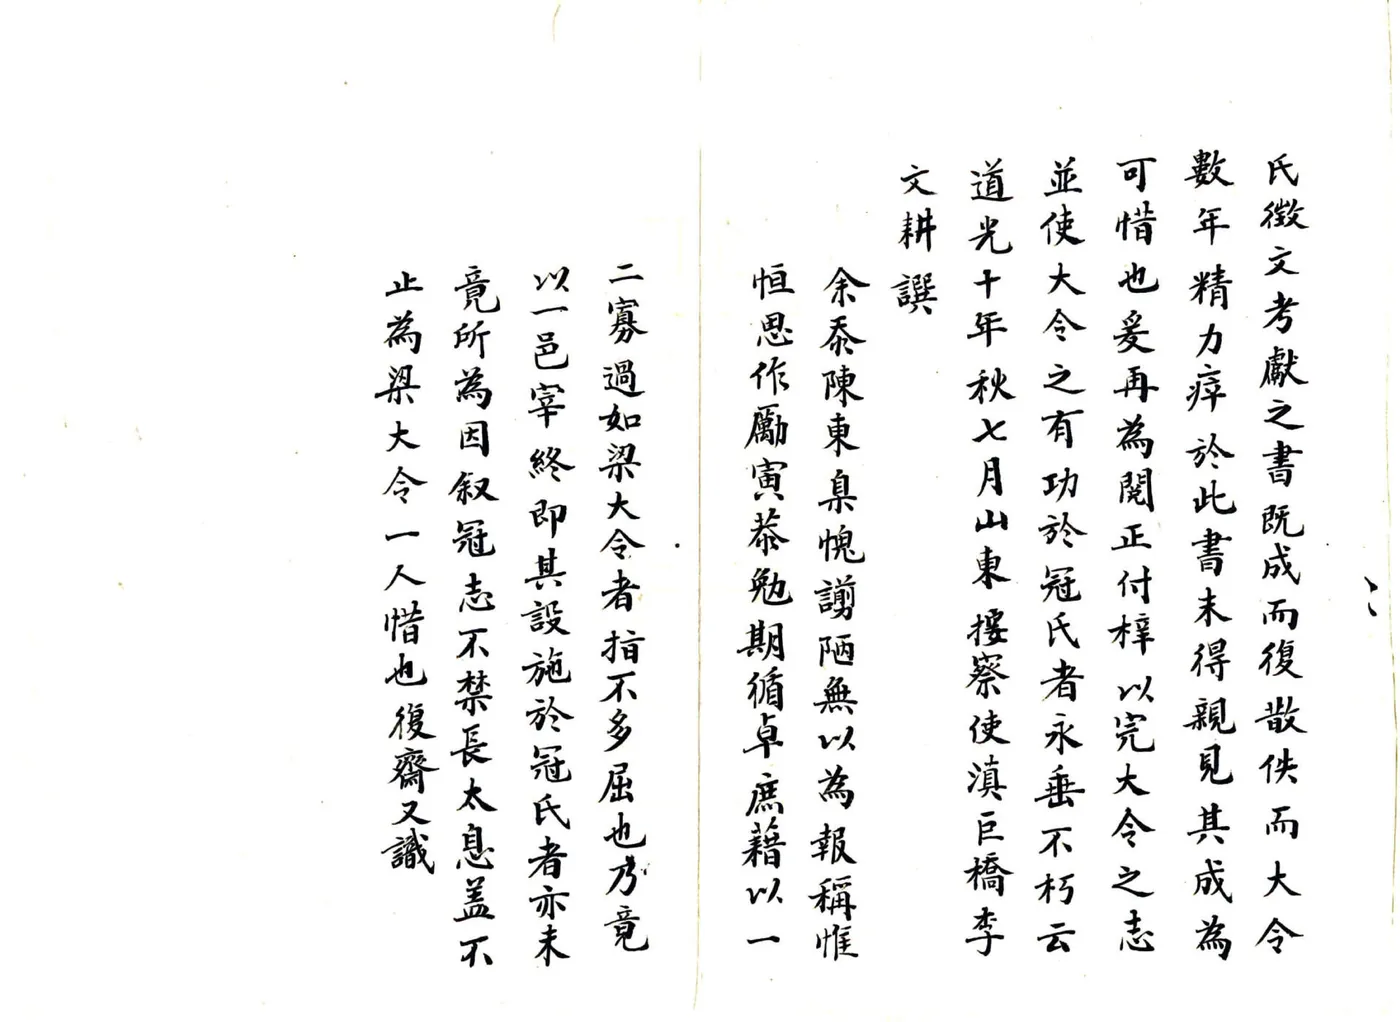 氏徵文考獻之書既成而復散佚而大令
數年精力瘁於此書未得親見其成為
可惜也爰再為閱正付梓以完大令之志
並使大令之有功於冠氏者永垂不朽云
道光十年秋七月山東按察使滇巨橋李
文耕譔
余忝陳東臬愧謭陋無以為報稱惟
恒思作勵寅恭勉期循卓庶藉以一
二寡過如梁大令者指不多屈也乃竟
以一邑宰終即其設施於冠氏者亦未
竟所為因叙冠志不禁長太息盖不
止為梁大令一人惜也復齋又識